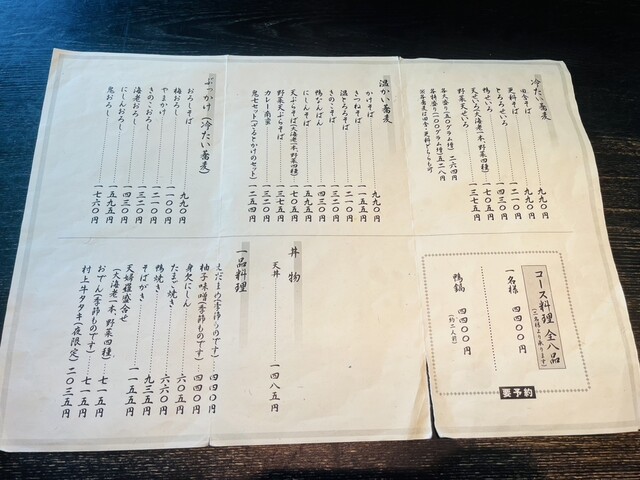 冷たい蕎麦
田舎そば 九九〇円
更科そば 九九〇円
とろろせいろ 一二一〇円
鴨せいろ 一四三〇円
天せいろ(大海老一本、野菜四種) 一七〇五円
野菜天せいろ 一三七五円
各大盛り(一五〇グラム増) 二六四円
各特盛り(三〇〇グラム増) 五二八円
※各蕎麦は田舎・更科どちらも可
温かい蕎麦
かけそば 九九〇円
きつねそば 一一五五円
温とろろそば 一二一〇円
きのこそば 一三二〇円
鴨なんばん 一四三〇円
にしんそば 一五九五円
天ぷらそば(大海老一本、野菜四種) 一七〇五円
野菜天ぷらそば 一三七五円
カレー南蛮 一三二〇円
鬼七セット(ざるとかけのセット) 一二五四円
ぶっかけ(冷たい蕎麦)
おろしそば 九九〇円
梅おろし 一一〇〇円
やまかけ 一二一〇円
きのこおろし 一三二〇円
海老おろし 一四三〇円
にしんおろし 一五九五円
鬼おろし 一七六〇円
コース料理 全八品
(二名様より承ります)
一名様 四四〇〇円
鴨鍋 四四〇〇円
(約二人前)
要予約
丼物
天丼 一四八五円
一品料理
えだまめ(季節ものです) 四四〇円
柚子味噌(季節ものです) 四四〇円
身欠にしん 六〇五円
たまご焼き 六六〇円
鴨焼き 九三五円
そばがき 一一五五円
天婦羅盛合せ
(大海老一本、野菜四種)
おでん(季節ものです) 七一五円
村上牛タタキ(夜限定) 二〇三五円